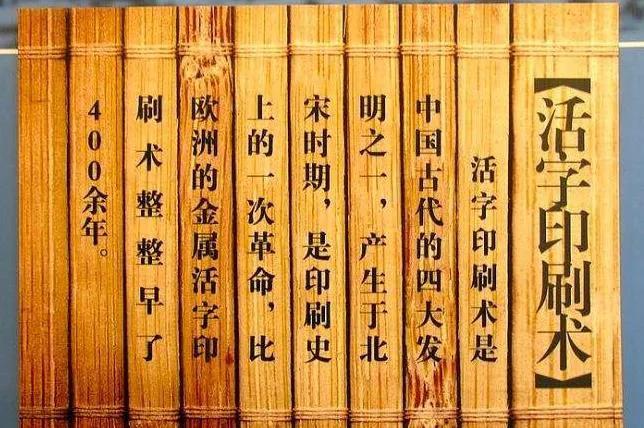 【活字印刷术】
活字印刷术是
中国古代的四大发
明之一，产生于北
宋时期，是印刷史
上的一次革命，比
欧洲的金属活字印
刷术整整早了
400余年。